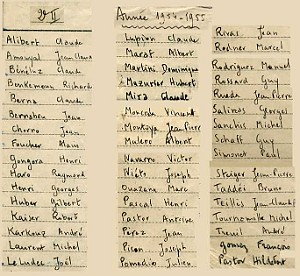 2e II
Alibert Claude
Amouyal Jean Claude
Bénéluz Claude
Bonkemoun Richard
Berna Claude
Bernabeu Jean
Chorro Jean
Foucher Alain
Gongora Henri
Haro Raymond
Henri Georges
Huber Gilbert
Kaiser Robert
Karkoup André
Laurent Michel
Le Ludec Joël
Année 1954-1955
Lupion Claude
Marat Albert
Martins Dominique
Mazurier Hubert
Mira Claude
Moncho Vincent
Montoya Jean Pierre
Mulero Albert
Navarro Victor
Niéto Joseph
Ouazana Marc
Pascal Henri
Pastor Antoine
Pérez Jean
Picon Joseph
Pomedio Julien
Rivas Jean
Rodner Marcel
Rodriguez Manuel
Rossard Guy
Rueda Jean Pierre
Salinas Georges
Sanchis Michel
Schaff Guy
Simonet Paul
Steiger Jean-Pierre
Taddéi Bruno
Teillès Jean Claude
Tournemille Michel
Treuil André
gomez François
Pastor Hildefont